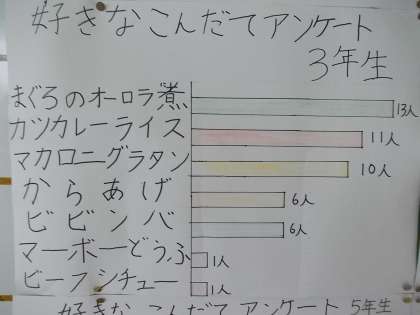 好きなこんだてアンケート
3年生
まぐろのオーロラ煮 13人
カツカレーライス 11人
マカロニグラタン 10人
からあげ 6人
ビビンバ 6人
マーボーどうふ 1人
ビーフシチュー 1人
好きなこんだてアンケート 5年生